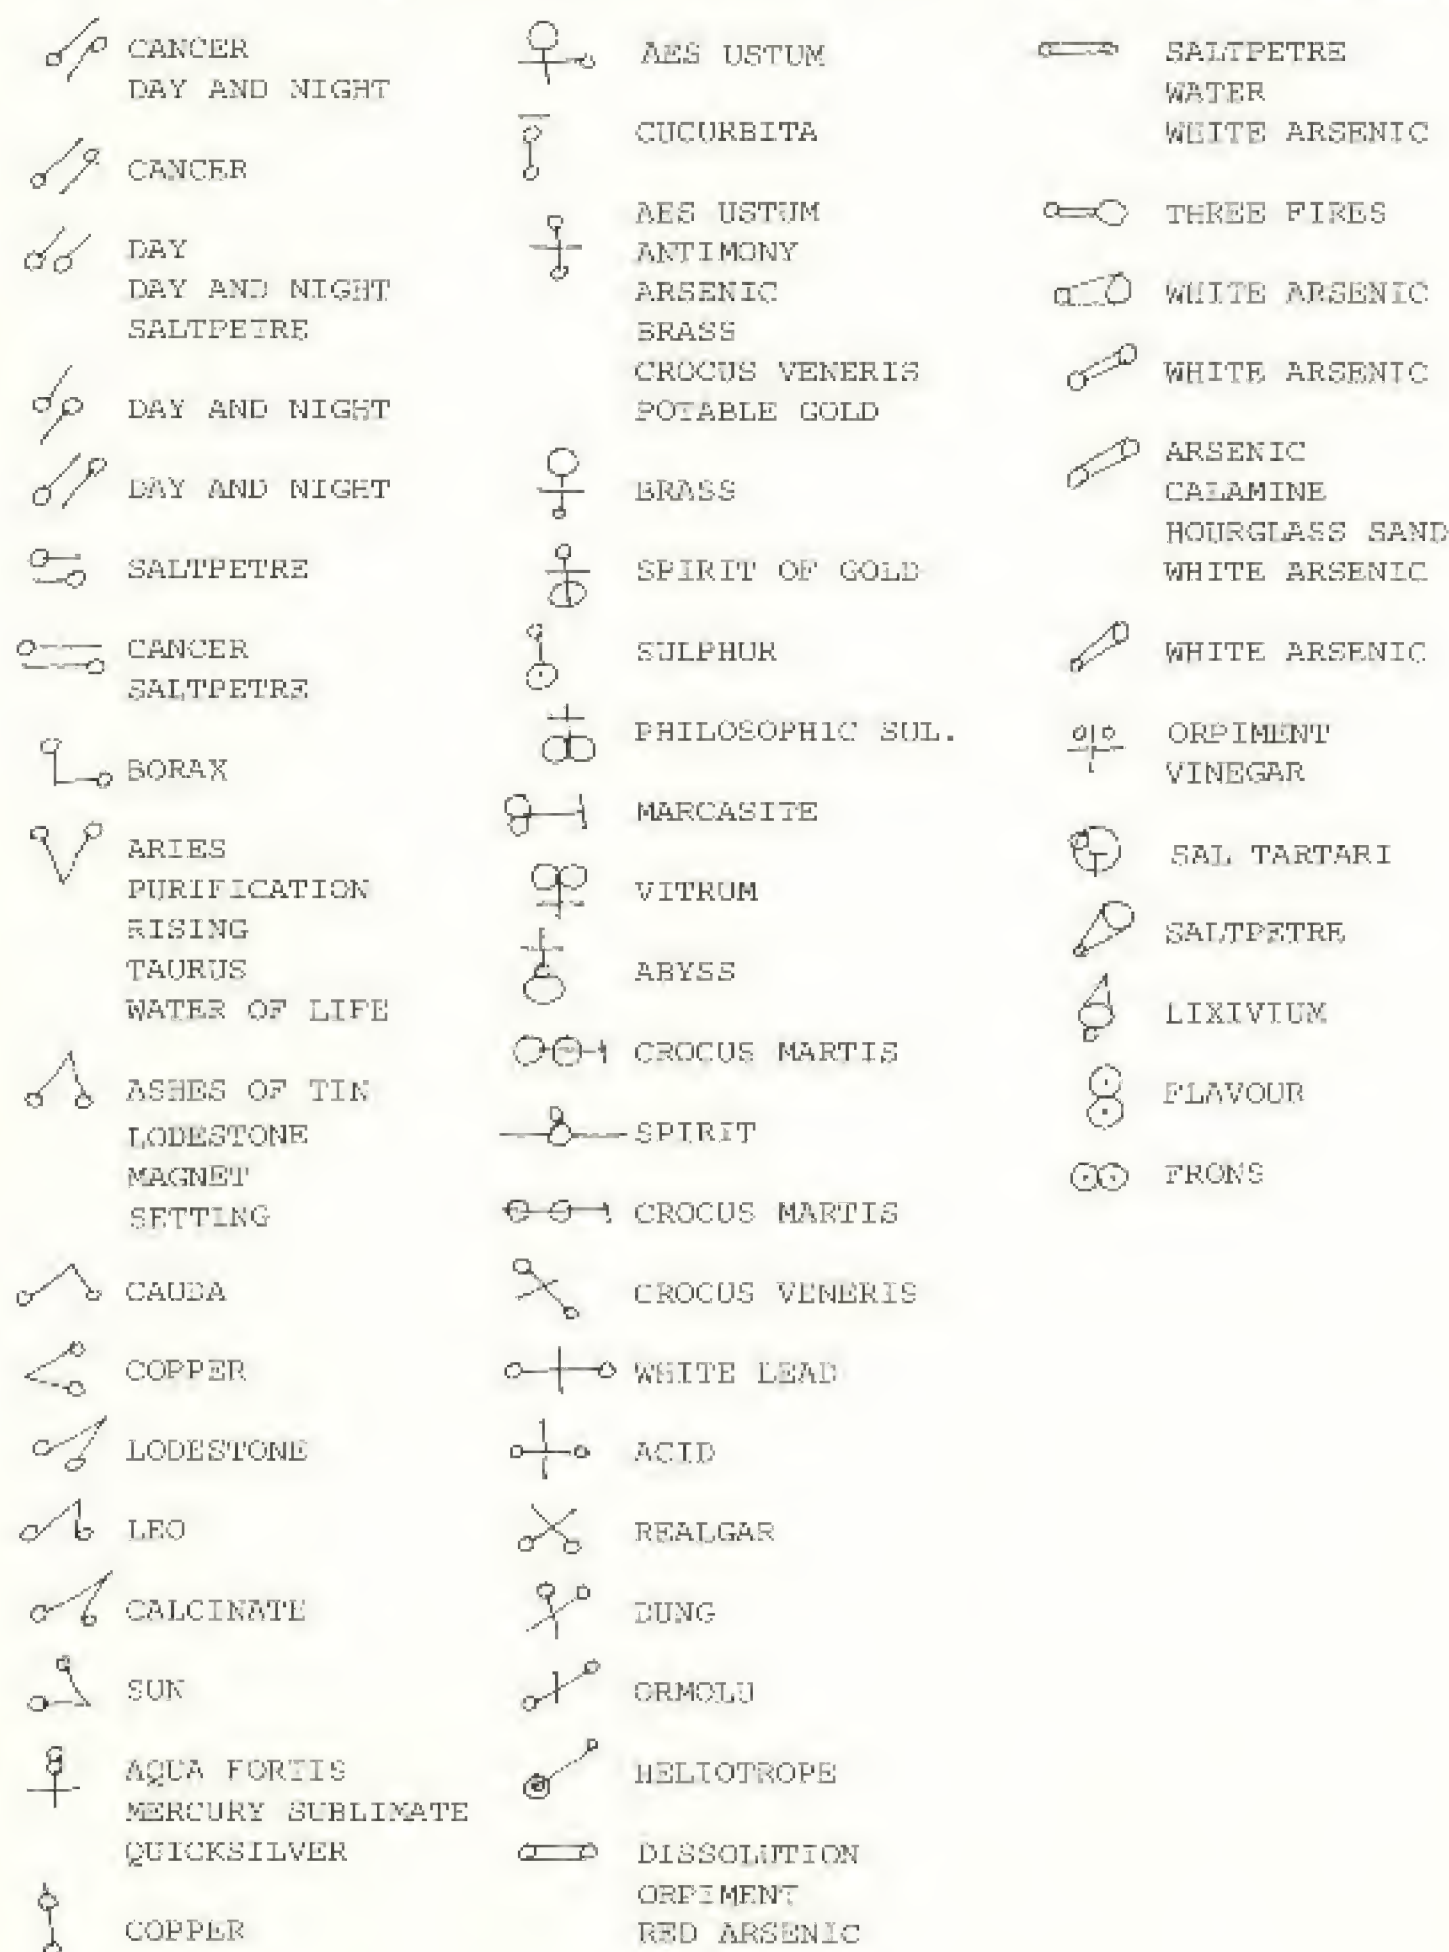 CANCER
DAY AND NIGHT
CANCER
DAY
DAY AND NIGHT
SALTPETRE
DAY AND NIGHT
DAY AND NIGHT
SALTPETRE
CANCER
SALTPETRE
BORAX
ARIES
PURIFICATION
RISING
TAURUS
WATER OF LIFE
ASHES OF TIN
LODESTONE
MAGNET
SETTING
CAUDA
COPPER
LODESTONE
LEO
CALCINATE
SUN
AQUA FORTIS
MERCURY SUBLIMATE
QUICKSILVER
COPPER
AES USTUM
CUCURBITA
AES USTUM
ANTIMONY
ARSENIC
BRASS
CROCUS VENERIS
POTABLE GOLD
BRASS
SPIRIT OF GOLD
SULPHUR
PHILOSOPHIC SUL.
MARCASITE
VITRUM
ABYSS
CROCUS MARTIS
SPIRIT
CROCUS MARTIS
CROCUS VENERIS
WHITE LEAD
ACID
REALGAR
DUNG
ORMOLU
HELIOTROPE
DISSOLUTION
ORPIMENT
RED ARSENIC
SALTPETRE
WATER
WHITE ARSENIC
THREE FIRES
WHITE ARSENIC
WHITE ARSENIC
ARSENIC
CALAMINE
HOURGLASS SAND
WHITE ARSENIC
WHITE ARSENIC
ORPIMENT
VINEGAR
SAL TARTARI
SALTPETRE
LIXIVIUM
FLAVOUR
FRONS